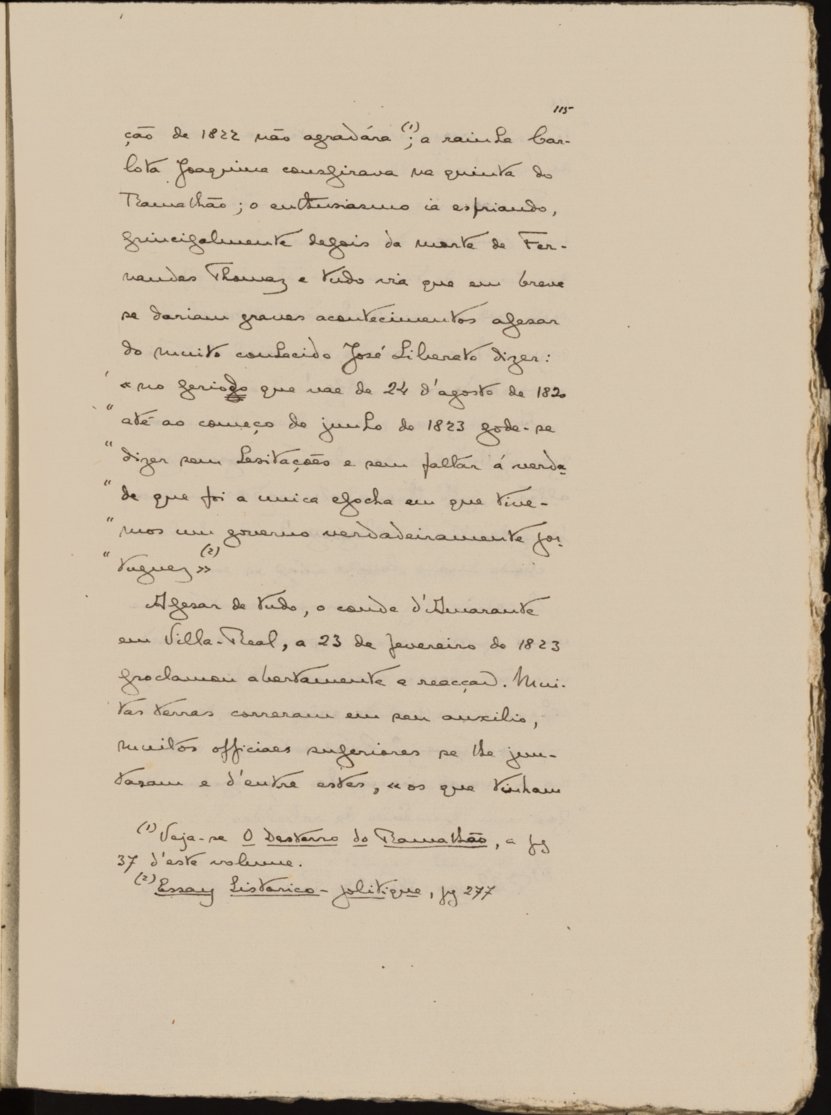 115
ção de 1822 não agradára (1); a rainha Car-
lota Joaquina conspirava na quinta do
Ramalhão; o enthusiasmo ia esfriando,
principalmente depois da morte de Fer-
nandes Thomaz e tudo via que em breve
se dariam graves acontecimentos apesar
do muito conhecido José Liberato dizer:
« no periodo que vae de 24 d'agosto de 1820
" até ao começo de junho de 1823 pode-se
" dizer sem hesitações e sem faltar á verda-
" de que foi a unica epocha em que tive-
" mos um governo verdadeiramente por-
" tuguez » (2)
Apesar de tudo, o conde d'Amarante
em Villa-Real, a 23 de fevereiro de 1823
proclamou abertamente a reacção. Mui-
tas terras correram em seu auxilio,
muitos officiaes superiores se lhe jun-
taram e d'entre estes, « os que tinham
(1) Veja-se O Desterro do Ramalhão, a pg
37 d'este volume.
(2) Essay historico-politique, pg 277